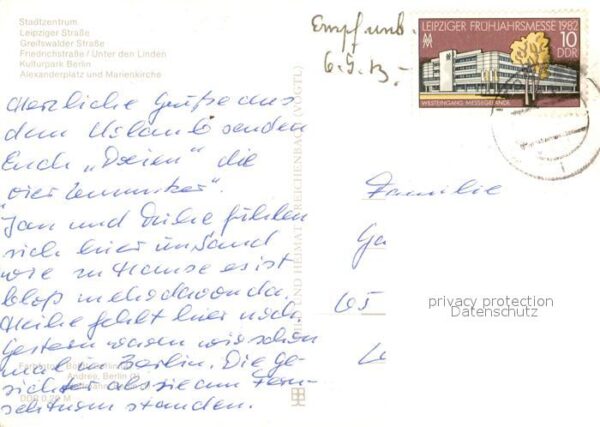 Stadtzentrum
Leipziger Straße
Greifswalder Straße
Friedrichstraße / Unter den Linden
Kulturpark Berlin
Alexanderplatz und Marienkirche
Empf unb.
6.9.13.-
LEIPZIGER FRÜHJAHRSMESSE 1982
10
DDR
WESTEINGANG MESSEGELÄNDE
Herzliche Grüße aus
dem Urlaub senden
Euch „Dreien" die
Jan und fühlen
sich hier im Sand
wie zu Hause es ist
bloß mehr davon da.
fehlt hier noch.
Gestern waren wir schon
mal in Berlin. Die Ge-
sichter als sie am Fern-
sehturm standen.
BILD UND HEIMAT REICHENBACH (VOGTL)
Familie
Ga
65
Le
privacy protection
Datenschutz
Berlin
DDR 0,20 M